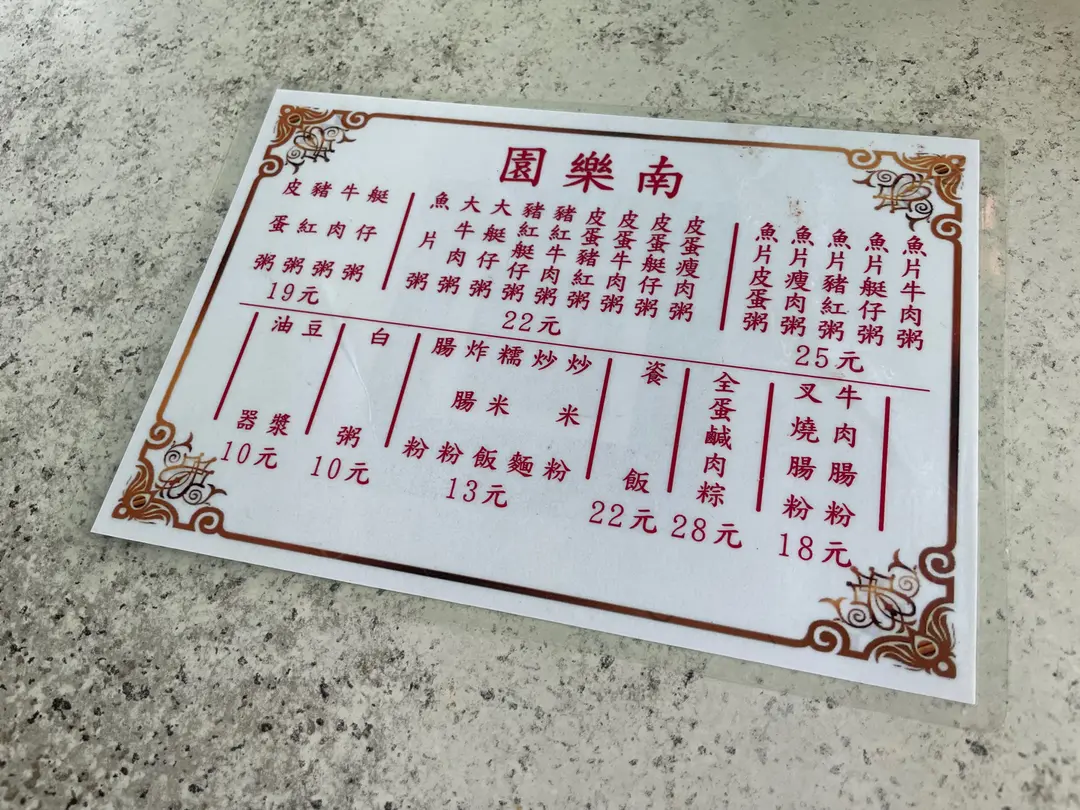 南樂園
魚片牛肉粥
魚片艇仔粥
魚片豬紅粥
魚片瘦肉粥
魚片皮蛋粥
25元
皮蛋瘦肉粥
皮蛋艇仔粥
皮蛋牛肉粥
皮蛋豬紅粥
豬紅牛肉粥
豬紅艇仔粥
大艇仔粥
大牛肉粥
魚片粥
22元
艇仔粥
牛肉粥
豬紅粥
皮蛋粥
19元
牛肉腸粉
叉燒腸粉
18元
全蛋鹹肉粽
28元
餈飯
22元
炒米粉
炒麵
糯米飯
炸腸粉
腸粉
13元
白粥
10元
豆漿
油器
10元